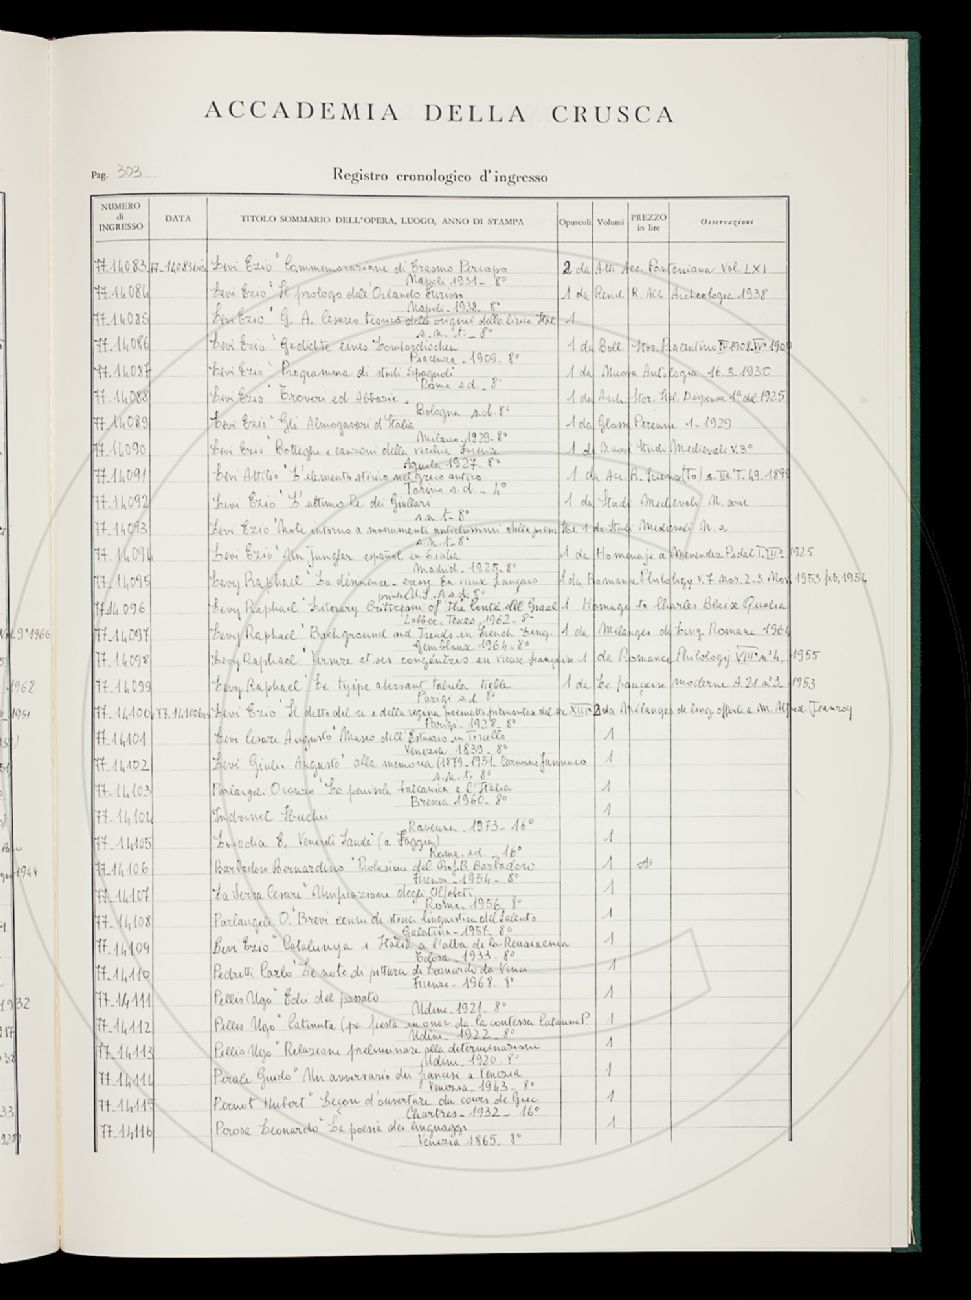 ACCADEMIA DELLA CRUSCA
Pag. 303
Registro cronologico d'ingresso
NUMERO di INGRESSO DATA TITOLO SOMMARIO DELL'OPERA, LUOGO, ANNO DI STAMPA Opuscoli Volumi PREZZO in lire Osservazioni
77-14083 77-14083bis Levi Ezio "Commemorazione di Erasmo Percopo 2 da Atti Acc. Pontoniana Vol. LXI
Napoli 1931 - 8°
77-14084 Levi Ezio "Il prologo dell'Orlando Furioso 1 da Rend. R. Acc. Archeologia 1938
Napoli - 1938 - 8°
77-14085 Levi Ezio "G. A. Cesareo teorico delle origini della lirica Ital. 1
s.n.t. - 8°
77-14086 Levi Ezio "Gedichte eines Lombardischen 1 da Boll. Stor. Piacentino IV 1908 IV 1909
Piacenza - 1909 - 8°
77-14087 Levi Ezio "Programma di studi Spagnoli 1 da Nuova Antologia 16.3.1930
Roma s.d. - 8°
77-14088 Levi Ezio "Troveri ed Abbazie 1 da Arch. Stor. Ital. Dispensa 1ª del 1925
Bologna s.d. 8°
77-14089 Levi Ezio "Gli Almogaveri d'Italia 1 da Glossa Perenne 1-1929
Milano - 1929 - 8°
77-14090 Levi Ezio "Botteghe e canzoni della vecchia Firenze 1 da Nuovi Studi Medievali V.3°
Aquila 1927 - 8°
77-14091 Levi Attilio "L'elemento storico nel greco antico 1 da Acc. R. Scienze (To) s. III T. 49. 1899
Torino s.d. - 4°
77-14092 Levi Ezio "L'ultimo Re dei Giullari 1 da Studi Medievali N. serie
s.n.t. - 8°
77-14093 Levi Ezio "Note intorno a monumenti 1 da Studi Medievali N. s.
s.n.t. - 8°
77-14094 Levi Ezio "Un Junglar español en Italia 1 da Homenaje a Menendez Pidal T. II° 1925
Madrid - 1925 - 8°
77-14095 Levy Raphael "La désinence -eresse En vieux français 1 da Romance Philology V. 7 Nos. 2-3 Nov. 1953 Feb. 1954
s.d. 8°
77-14096 Levy Raphael "Literary Criticism of The Conte del Graal 1 Homage to Charles Blaise Qualia
Lubbock - Texas, 1962 - 8°
77-14097 Levy Raphael "Background and Trends in French Ling. 1 da Mélanges de Ling. Romane 1964
Gembloux 1964 - 8°
77-14098 Levy Raphael et ses congénères en vieux française 1 da Romance Philology VIII n° 4, 1955
77-14099 Levy Raphael "Le type aberrant tabula 1 da Le française moderne A. 21 n° 3 - 1953
Parigi s.d. 8°
77-14100 77-14100bis Levi Ezio "Il detto del re e della regina poemetto piemontese del sec. XIII° 2 da Mélanges de ling. offerts a M. Alfred Jeanroy
Parigi - 1928 - 8°
77-14101 Levi Cesare Augusto "Museo dell'Estuario in Torcello 1
Venezia 1839 - 8°
77-14102 Levi Giulio Augusto "alla memoria (1879-1951. Carmine Jannaco 1
s.n.t. 8°
77-14103 Parlangeli Oronzo "La penisola balcanica e l'Italia 1
Brescia 1960 - 8°
77-14104 1
Ravenna - 1973 - 16°
77-14105 Venerdì Santi (a Foggia) 1
Roma - ed. - 16°
77-14106 Barbadoro Bernardino "Prolusione del Prof. B. Barbadoro 1
Firenze - 1954 - 8°
77-14107 La Serra Cesare "Unificazione degli Alfabeti 1
Roma - 1956 - 8°
77-14108 Parlangeli O. "Brevi cenni di storia linguistica del Salento 1
Galatina - 1957 - 8°
77-14109 Levi Ezio "Catalunya i Italia a l'alba de la Renaixença 1
1933 - 8°
77-14110 Pedretti Carlo "Le note di pittura di Leonardo da Vinci 1
Firenze - 1968 - 8°
77-14111 Pellis Ugo "Echi del passato 1
Udine - 1921 - 8°
77-14112 Pellis Ugo "Catinuta (pe fiesta in onor da la contessa Cataruna P. 1
Udine - 1922 - 8°
77-14113 Pellis Ugo "Relazione preliminare alla determinazione 1
Udine - 1920 - 8°
77-14114 Perale Guido "Un anniversario dei francesi a Venezia 1
Venezia - 1943 - 8°
77-14115 Pernot Hubert "Leçon d'ouverture du cours de Grec 1
Chartres - 1932 - 16°
77-14116 Perosa Leonardo "La poesia dei linguaggi 1
Venezia 1865 - 8°